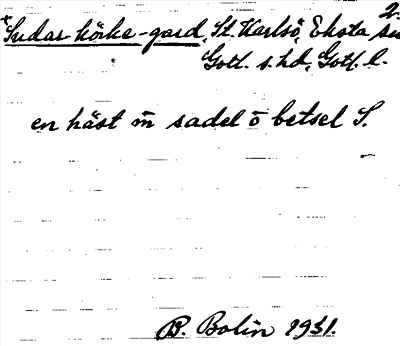 2.
*Sudar-körke-gard, St. Karlsö, Eksta sn
Gotl. s. hd, Gotl. l.
en häst m̄ sadel ō betsel S.
B. Bolin 1931.